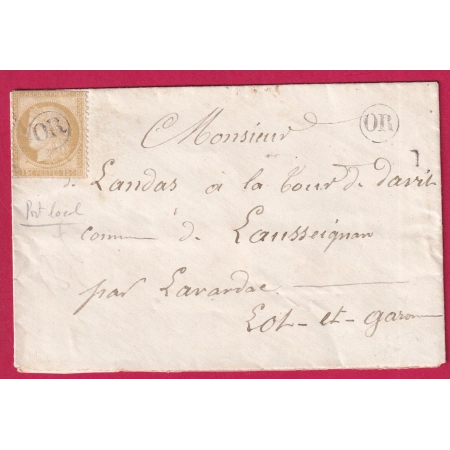 OR
Monsieur OR
de Landas à la tour de davit
Port local
commune de Lausseignan
par Lavardac
Lot-et-garonne